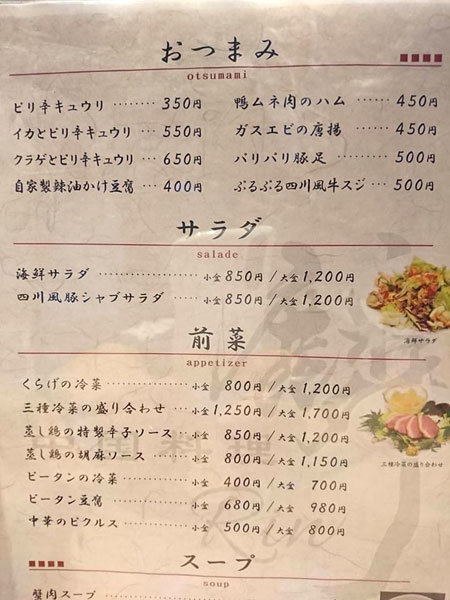 おつまみ
otsumami
ピリ辛キュウリ ········ 350円
イカとピリ辛キュウリ ··· 550円
クラゲとピリ辛キュウリ ·· 650円
自家製辣油かけ豆腐 ··· 400円
鴨ムネ肉のハム ······ 450円
ガスエビの唐揚 ······ 450円
パリパリ豚足 ········ 500円
ぷるぷる四川風牛スジ ·· 500円
サラダ
salade
海鮮サラダ ················ 小盆 850円 / 大盆 1,200円
四川風豚シャブサラダ ······ 小盆 850円 / 大盆 1,200円
海鮮サラダ
前菜
appetizer
くらげの冷菜 ············ 小盆 800円 / 大盆 1,200円
三種冷菜の盛り合わせ ··· 小盆 1,250円 / 大盆 1,700円
蒸し鶏の特製辛子ソース ·· 小盆 850円 / 大盆 1,200円
蒸し鶏の胡麻ソース ······ 小盆 800円 / 大盆 1,150円
ピータンの冷菜 ·········· 小盆 400円 / 大盆 700円
ピータン豆腐 ············ 小盆 680円 / 大盆 980円
中華のピクルス ·········· 小盆 500円 / 大盆 800円
三種冷菜の盛り合わせ
スープ
soup
蟹肉スープ